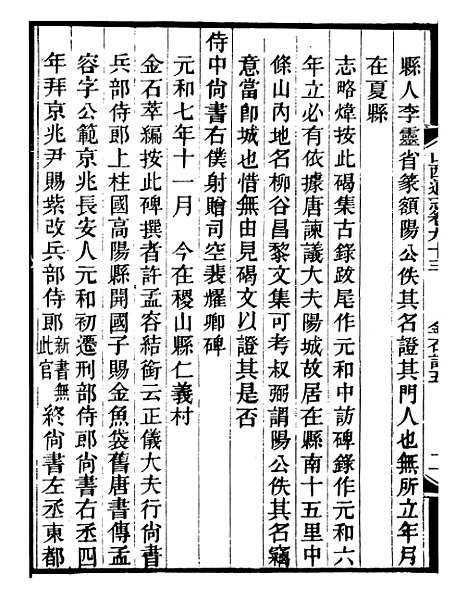 縣人李靈省篆額陽公佚其名證其門人也無所立年月
在夏縣
志略煒按此碣集古錄跋尾作元和中訪碑錄作元和六
年立必有依據唐諫議大夫陽城故居在縣南十五里中
條山內地名柳谷昌黎文集可考叔弼謂陽公佚其名竊
意當卽城也惜無由見碣文以證其是否
侍中尙書右僕射贈司空裴耀卿碑
元和七年十一月　今在稷山縣仁義村
金石萃編按此碑撰者許孟容結銜云正儀大夫行尙書
兵部侍郎上柱國高陽縣開國子賜金魚袋舊唐書傳孟
容字公範京兆長安人元和初遷刑部侍郎尙書右丞四
年拜京兆尹賜紫改兵部侍郎新書無此官終尙書左丞東都
山西通志卷九十三　金石記五